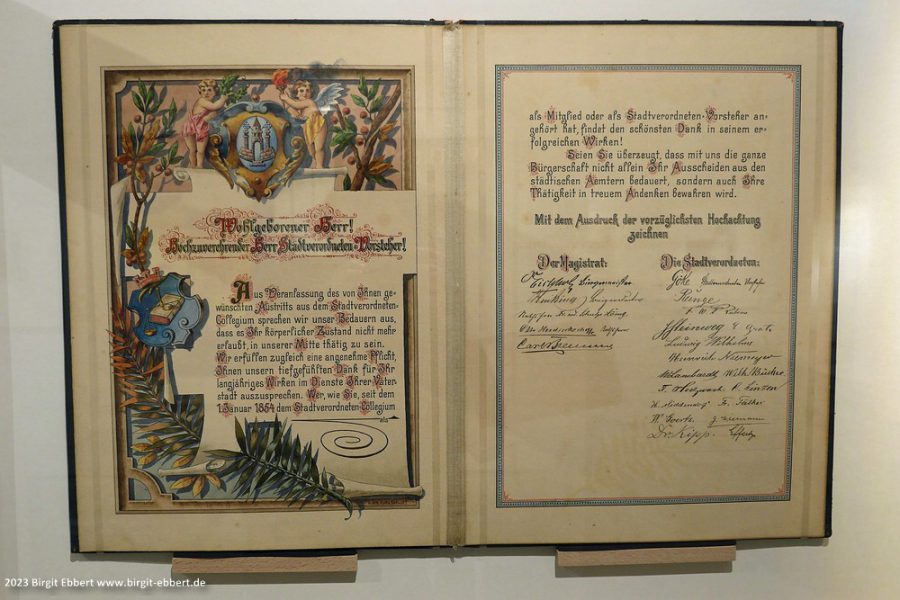 Wohlgeborener Herr!
Hochzuverehrender Herr Stadtverordneten-Vorsteher!
Aus Veranlassung des von Ihnen ge-
wünschten Austritts aus dem Stadtverordneten-
Collegium sprechen wir unser Bedauern aus,
dass es Ihr körperlicher Zustand nicht mehr
erlaubt, in unserer Mitte thätig zu sein.
Wir erfüllen zugleich eine angenehme Pflicht,
Ihnen unsern tiefgefühlten Dank für Ihr
langjähriges Wirken im Dienste Ihrer Vater-
stadt auszusprechen. Wer, wie Sie, seit dem
1. Januar 1854 dem Stadtverordneten-Collegium
als Mitglied oder als Stadtverordneten-Vorsteher an-
gehört hat, findet den schönsten Dank in seinem er-
folgreichen Wirken!
Seien Sie überzeugt, dass mit uns die ganze
Bürgerschaft nicht allein Ihr Ausscheiden aus den
städtischen Aemtern bedauert, sondern auch Ihre
Thätigkeit in treuem Andenken bewahren wird.
Mit dem Ausdruck der vorzüglichsten Hochachtung
zeichnen
Der Magistrat:
Die Stadtverordneten:
Ludwig Wilhelmi
Heinrich Niemeyer
Dr. Kipp.
2023 Birgit Ebbert www.birgit-ebbert.de